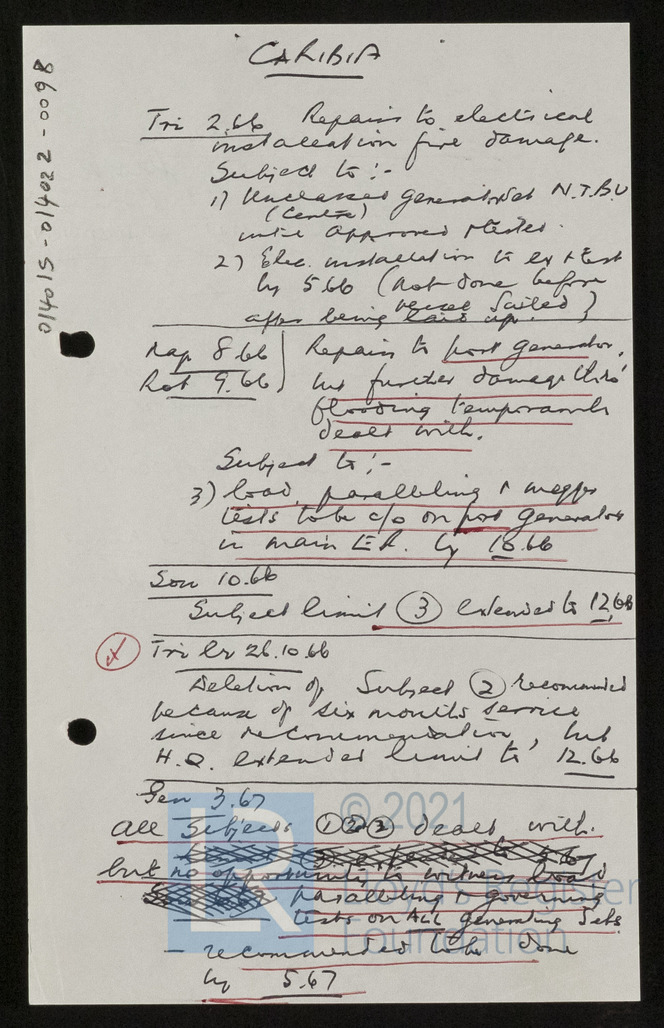 CARIBIA
014015-014022-0098
Tri 2.66 Repairs to electrical
installation fire damage.
Subject to :-
1) Unclassed generator set N.T.B.U
(Centre)
until approved & tested.
2) Elec. installation to be ex & test
by 5.66 (not done before
vessel sailed)
after being laid up.
Nap 8.66 Repairs to port generator,
Rot 9.66 but further damage thro'
flooding temporarily
dealt with.
Subject to :-
3) load, paralleling & megger
tests to be c/o on port generator
in main E.R. by 10.66
Son 10.66
Subject limit (3) extended to 12.66
Tri lr 26.10.66
Deletion of Subject (2) recommended
because of six months service
since recommendation, but
H.Q. extended limit to 12.66
Gen 3.67
All Subjects (1)(2)(3) dealt with.
but no opportunity to witness load
paralleling & governing
tests on ALL generating Sets
- recommended to be done
by 5.67
© 2021
LR
Lloyd's Register
Foundation